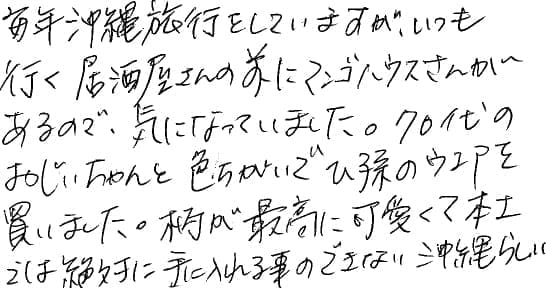 毎年沖縄旅行をしていますが、いつも
行く居酒屋さんの前にマンゴハウスさんが
あるので、気になっていました。70代の
おじいちゃんと色ちがいでひ孫のウエアを
買いました。柄が最高に可愛くて本土
では絶対に手に入れる事のできない沖縄らしい